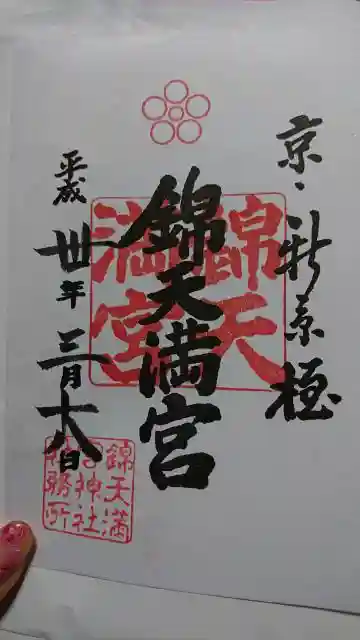 京・新京極
錦天満宮
錦天
満宮
平成卅年三月十八日
錦天満
宮神社
社務所